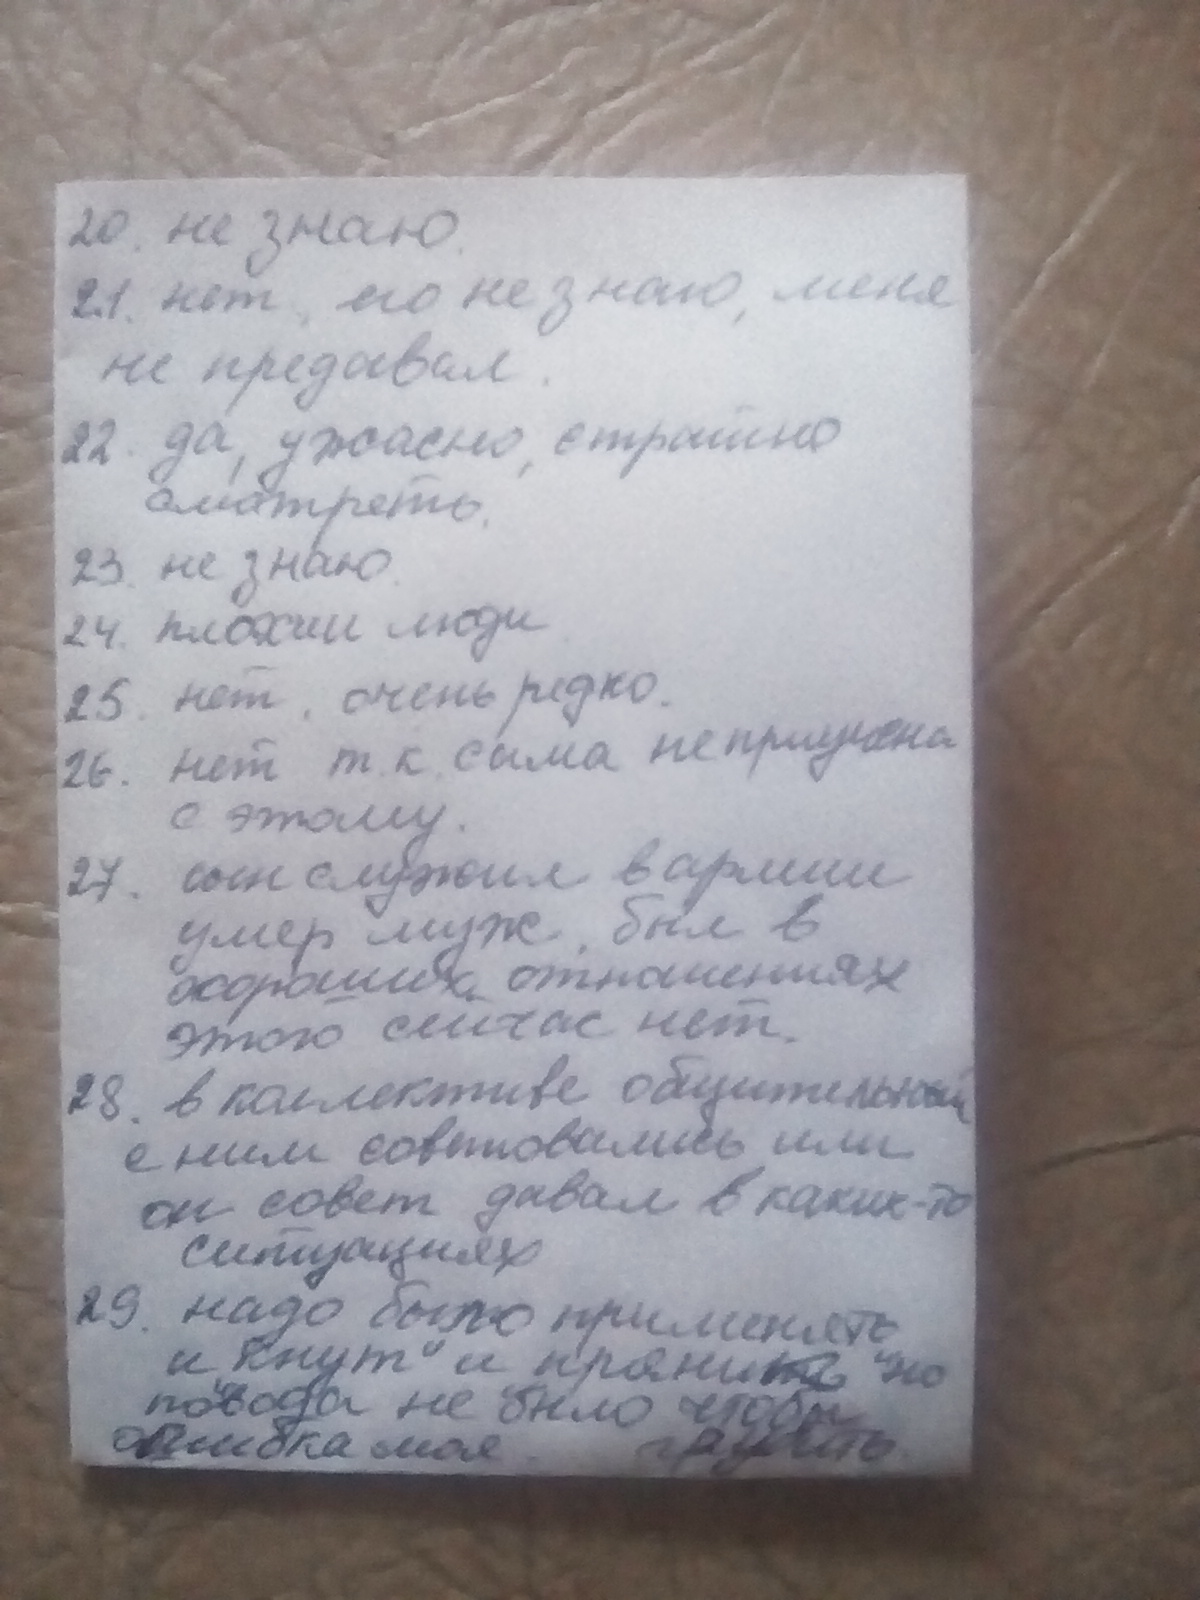 20. не знаю.
21. нет, его не знаю, меня
не предавал.
22. да, ужасно, страшно
смотреть.
23. не знаю.
24. плохии люди
25. нет, очень редко.
26. нет т.к. сама не приучена
с этому.
27. сын служил в армии
умер муж, был в
хороших отношениях
этого сейчас нет.
28. в коллективе общительный
с ним советовались или
он совет давал в каких-то
ситуациях
29. надо было применять
и "кнут" и "пряник" но
повода не было чтобы
ошибка моя. грубить.